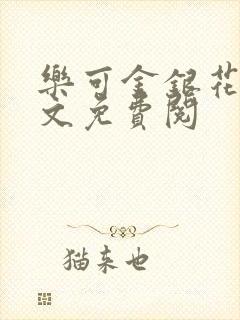 樂可金銀花
文免費閱
猫来也